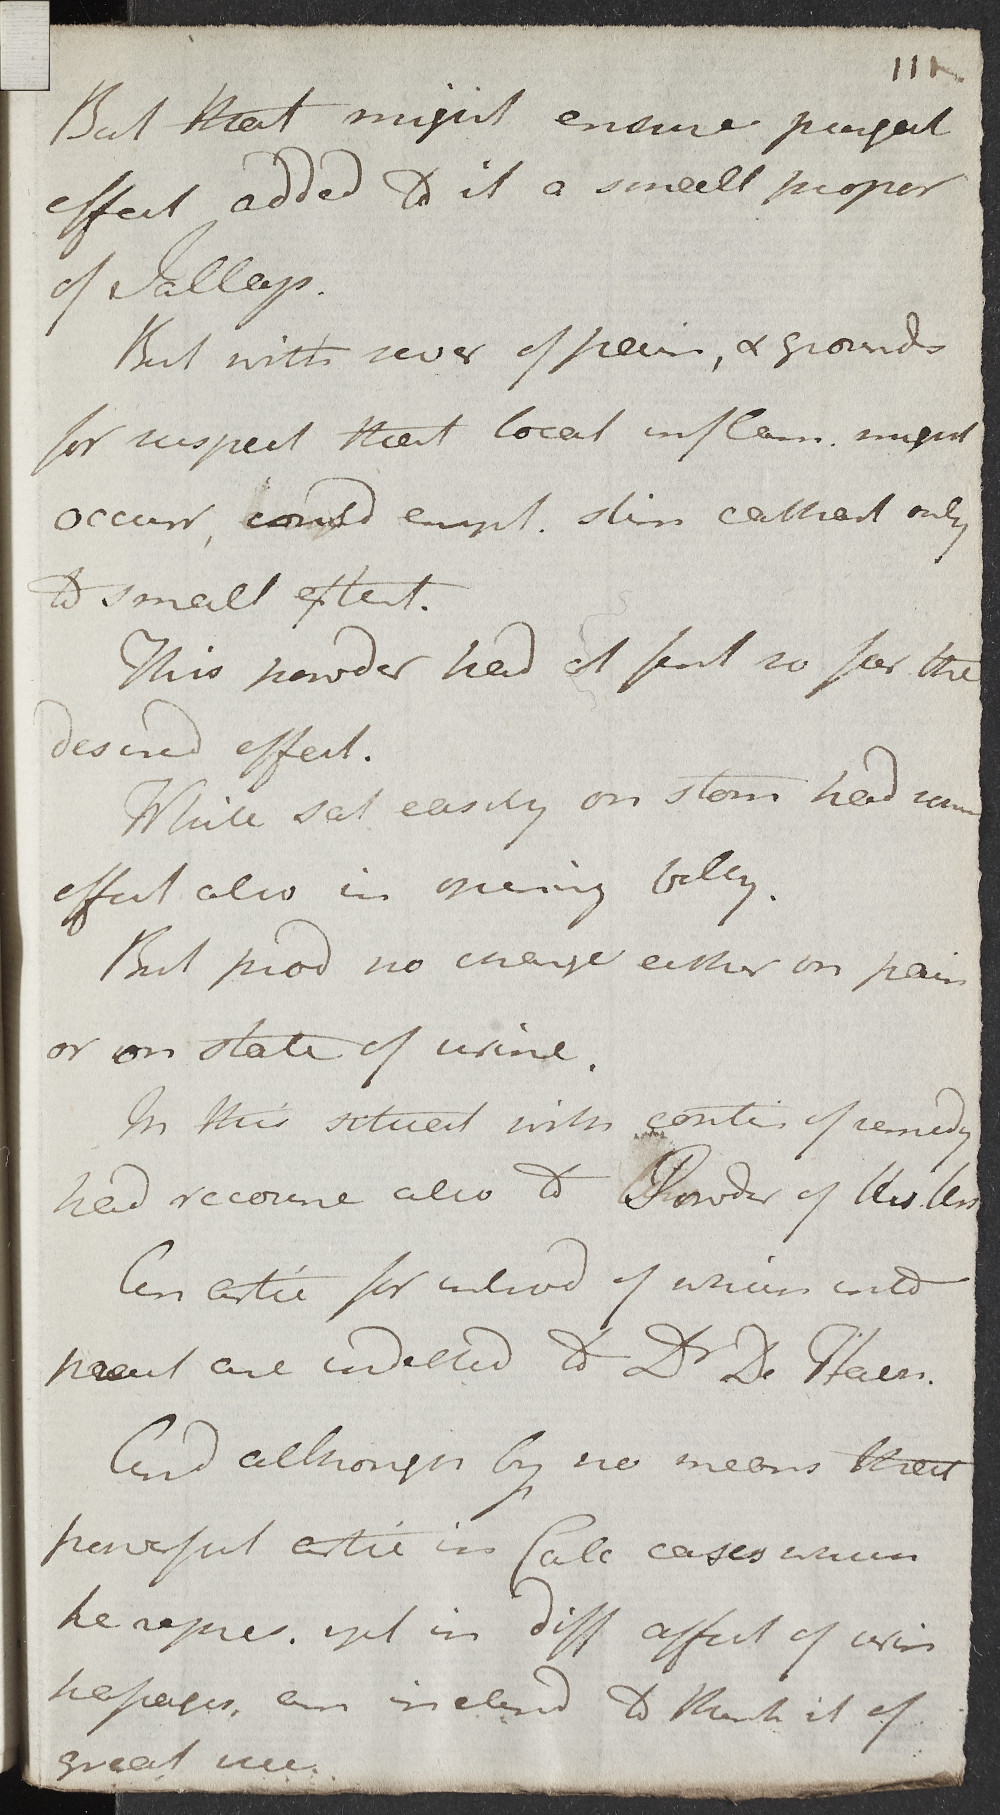 111
But that might ensure purgat
effect added to it a small propor
of Jallap.
But with sever of pain, & grounds
for suspect that local inflam. might
occurr, could empl. stim cathart only
to small extent.
This powder had at first so far the
desired effect.
While sat easily on stom had some
effect also in opening belly.
But prod no change either on pain
or on state of urine.
In this situat with contin of remedy
had recourse also to Powder of Uva Urs
An artic for introd of which into
pract are indebted to Dr De Haen.
And although by no means that
powerful artic in Calc cases which
he repres. yet in diff affect of urin
passages, am inclind to think it of
great use.